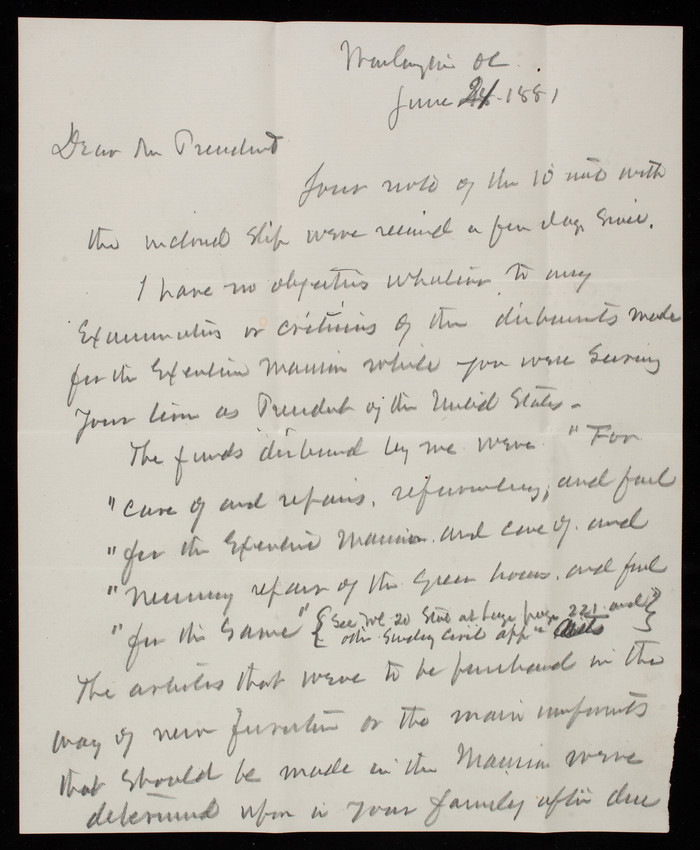 Washington DC.
June 24-1881
Dear Mr President
Your note of the 10 inst with
the inclosed slip were received a few days since.
I have no objection whatever to any
Examination or criticism of the disbursments made
for the Executive Mansion while you were serving
your term as President of the United States-
The funds disbursed by me were "For
"care of and repairs, refurnishing, and fuel
"for the Executive Mansion, and care of and
"necessary repairs of the Green houses, and fuel
"for the same" {See Vol 20 Stat at large page 221 and
other Sundry Civil app" Acts}
The articles that were to be purchased in the
way of new furniture or the main improvements
that should be made in the Mansion were
determined upon in your family after due